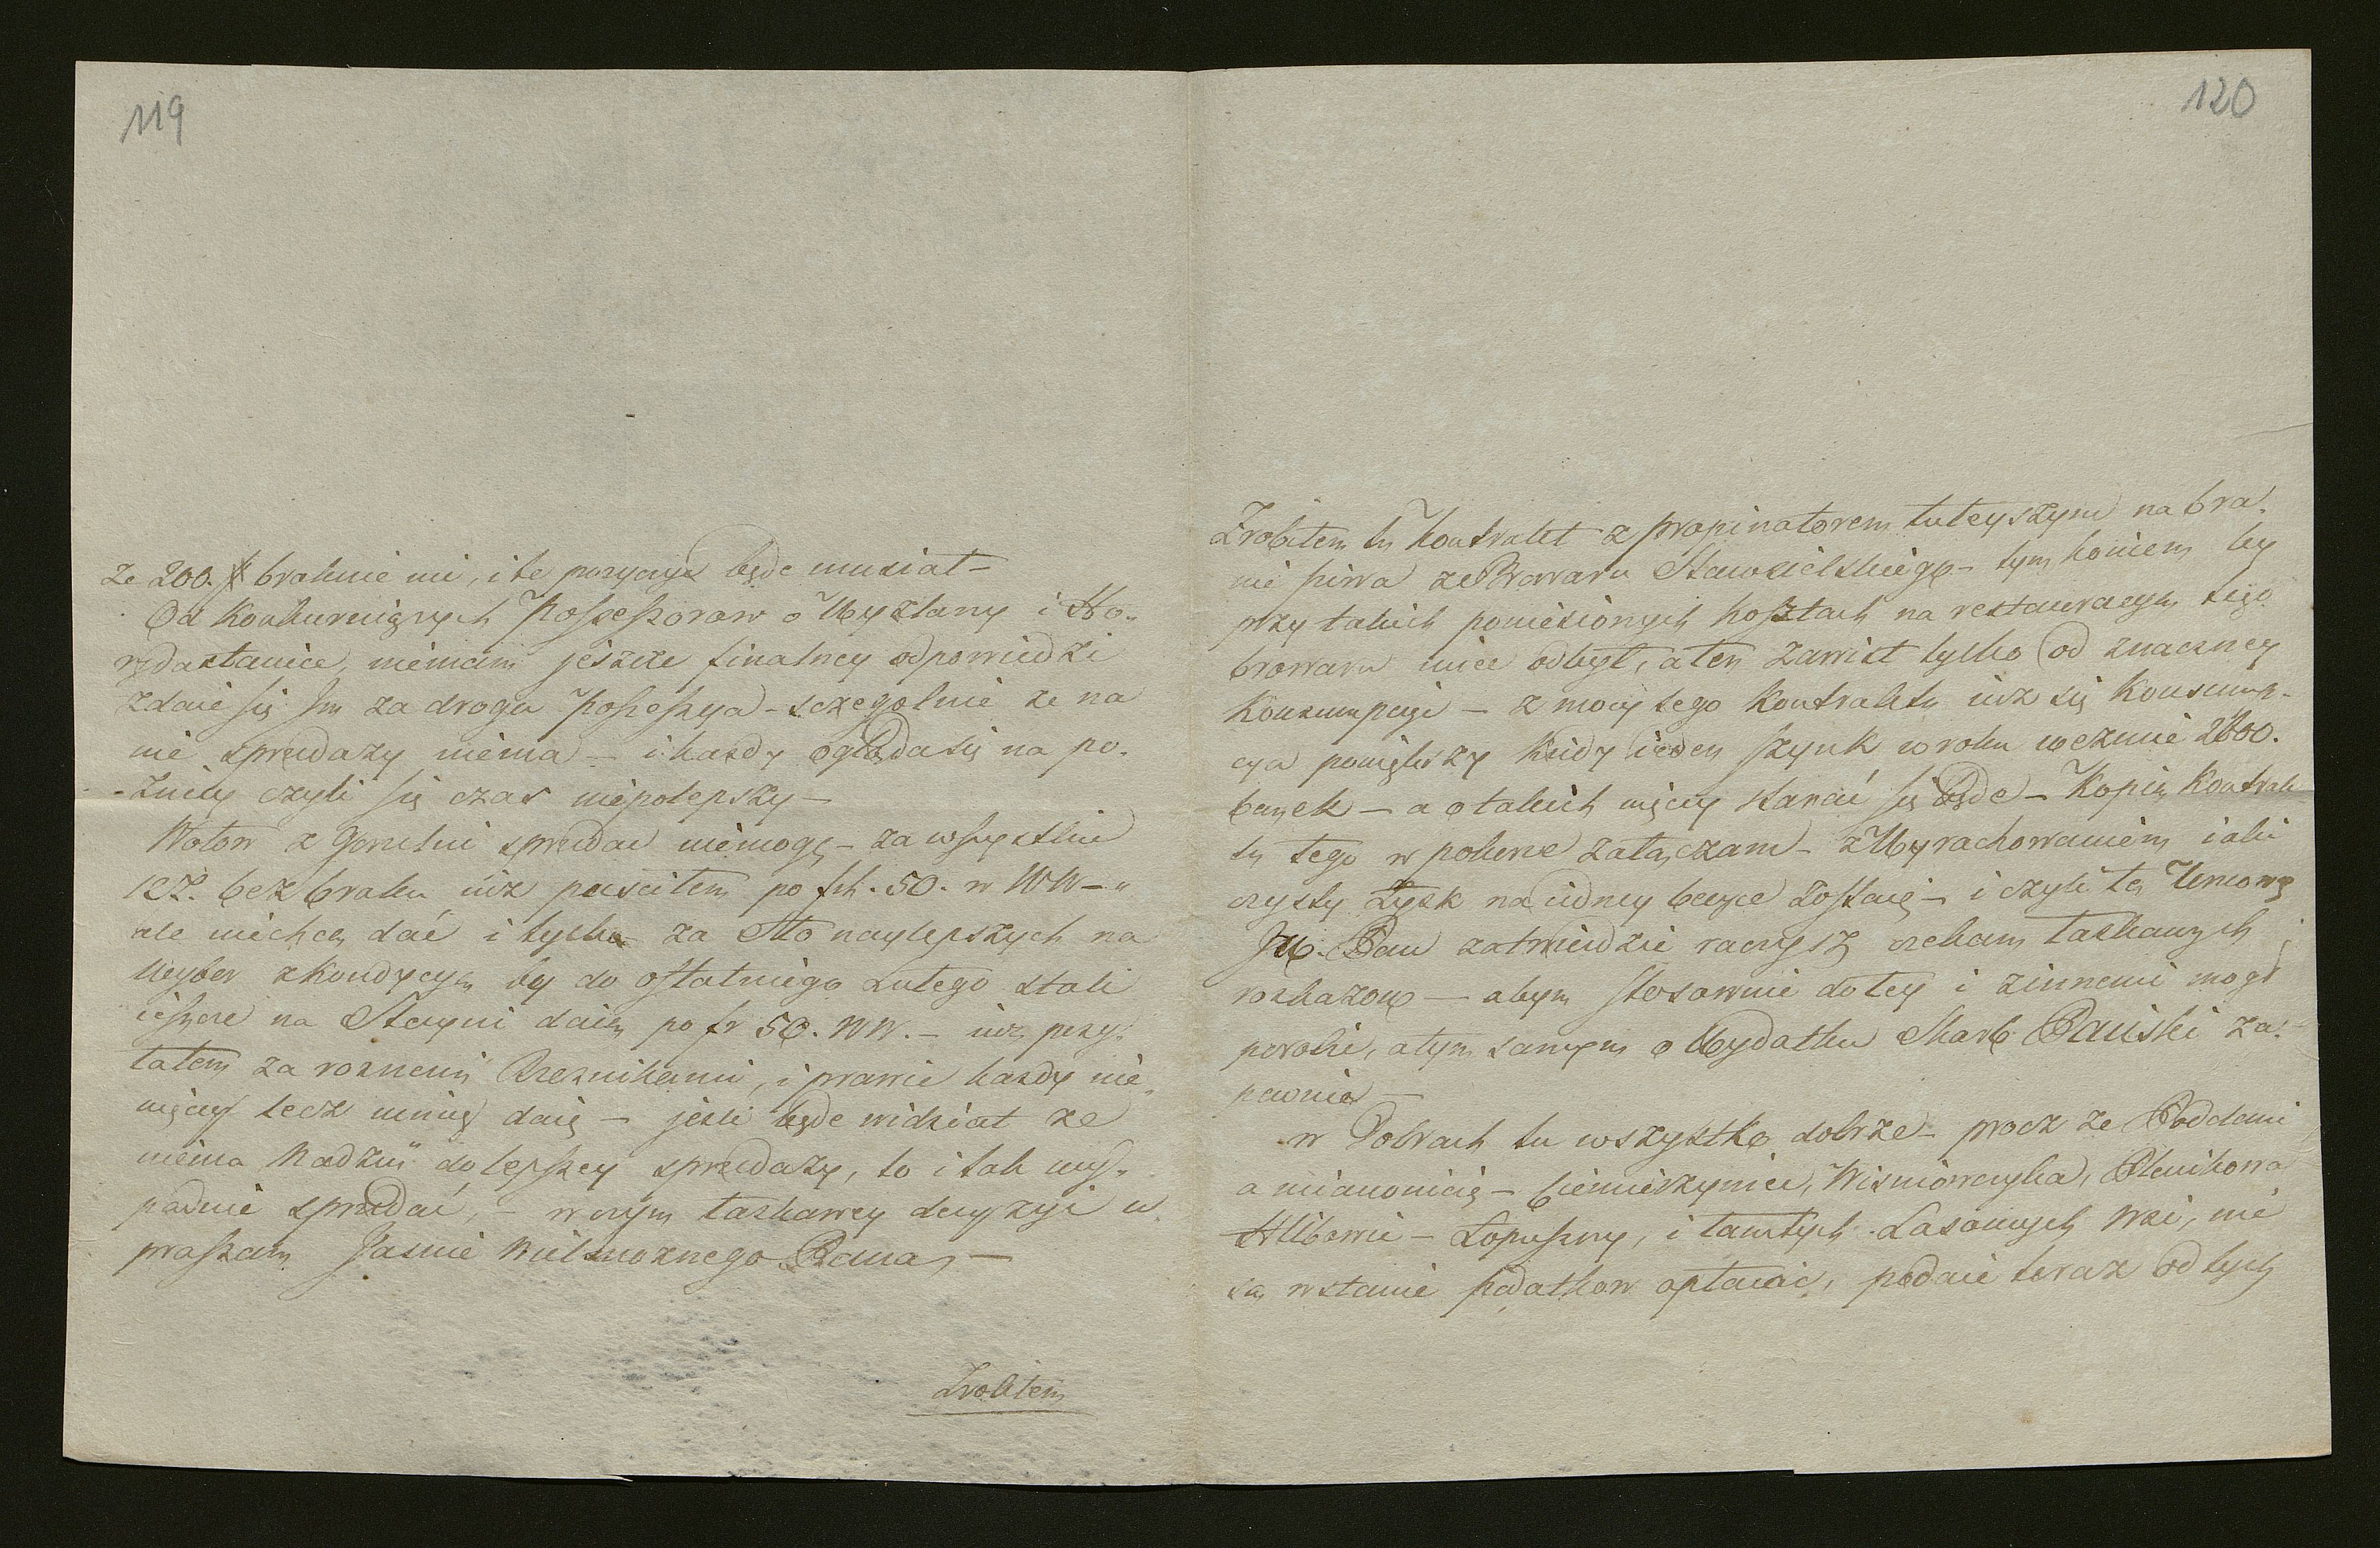 119
Ze 200. # braknie mi, i te pozycye będe musiał –
Od Konkuruiących Possessorow o Wyzlany i Ho-
rędastanice, niemam jeszcze finalney odpowiedzi
zdaie się Im za droga Possessya – szczegolnie ze na
nie sprzedazy niema – i kazdy ogląda się na po-
-zniey czyli się czas niepolepszy –
Wołow z Gorzelni sprzedac niemogę – za wszystkie
127. bez braku iuz pusciłem po fr. 50. w WW – "
ale niechcą dać i tylko za Sto naylepszych na
wybor z kondycyą by do ostatniego Lutego stali
ieszcze na Stayni daią po fr 50. WW. – iuz pzy-
tałem za roznemi Rzeznikami, i prawie kazdy nie
więcey lecz mniey daię – jesli będe widział ze
niema Nadziei do lepszey sprzedazy, to i tak wy-
padnie sprzedać, – w czym łaskawey decyzyi u
praszam Jasnie Wielmoznego Pana, –
Zrobiłem
120
Zrobiłem tu Kontrakt z propinatorem tuteyszym na bra-
nie piwa ze Browaru Stawsielskiego – tym koniem by
przy takich poniesionych kosztach na restauracyą tego
browaru miec odbyt, a ten zawisł tylko od znaczney
Konzumpcyi – z mocy tego Kontraktu iuz się Konsump-
cya powiększy kiedy ieden szynk w roku wezmie 2600.
beczek – a o takich więcey starać się będe – Kopią Kontrak
tu tego w pokorze załączam – z Wyrachowaniem iaki
czysty Zysk na iedney beczce zostaię – i czyli tę Umowę
JW. Pan zatwierdzić raczysz czekam łaskawych
rozkazow – abym stosownie do tey i z innemi mogł
porobić, a tym samym o Wydatku Skarb Pański za-
pewnie –
w Dobrach tu wszystko dobrze – procz ze Poddani
a mianowicię – Ciemierzynice, Wisniowczyka, Plenikowa
Hlibowie – Łopuszny, i tamtych Lasowych Wsi, nie
są wstanie podatkow opłacić, podaie teraz od tych